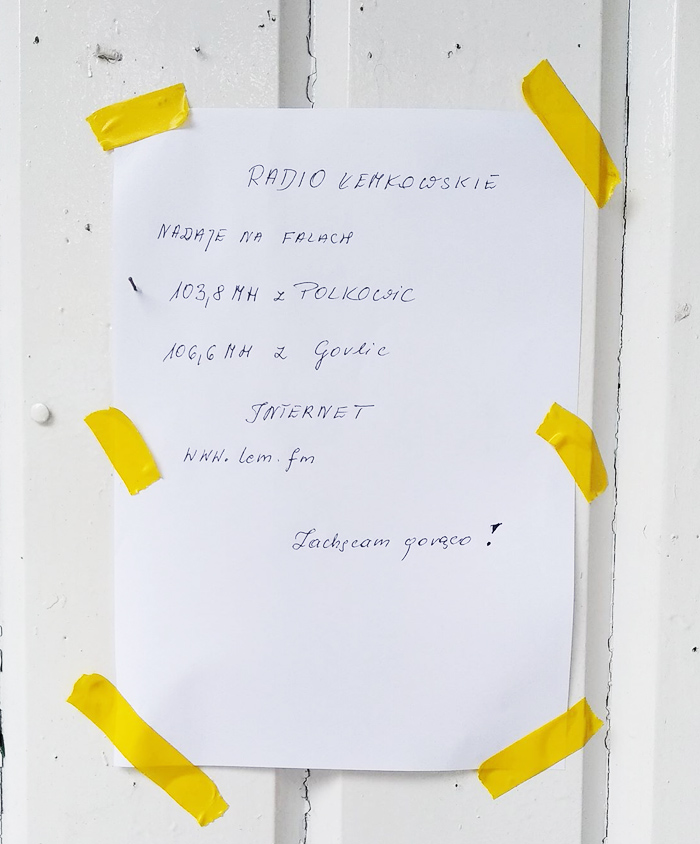 RADIO ŁEMKOWSKIE
NADAJE NA FALACH
103,8 MH z POLKOWIC
106,6 MH z Gorlic
INTERNET
WWW. lem.fm
Zachęcam gorąco!